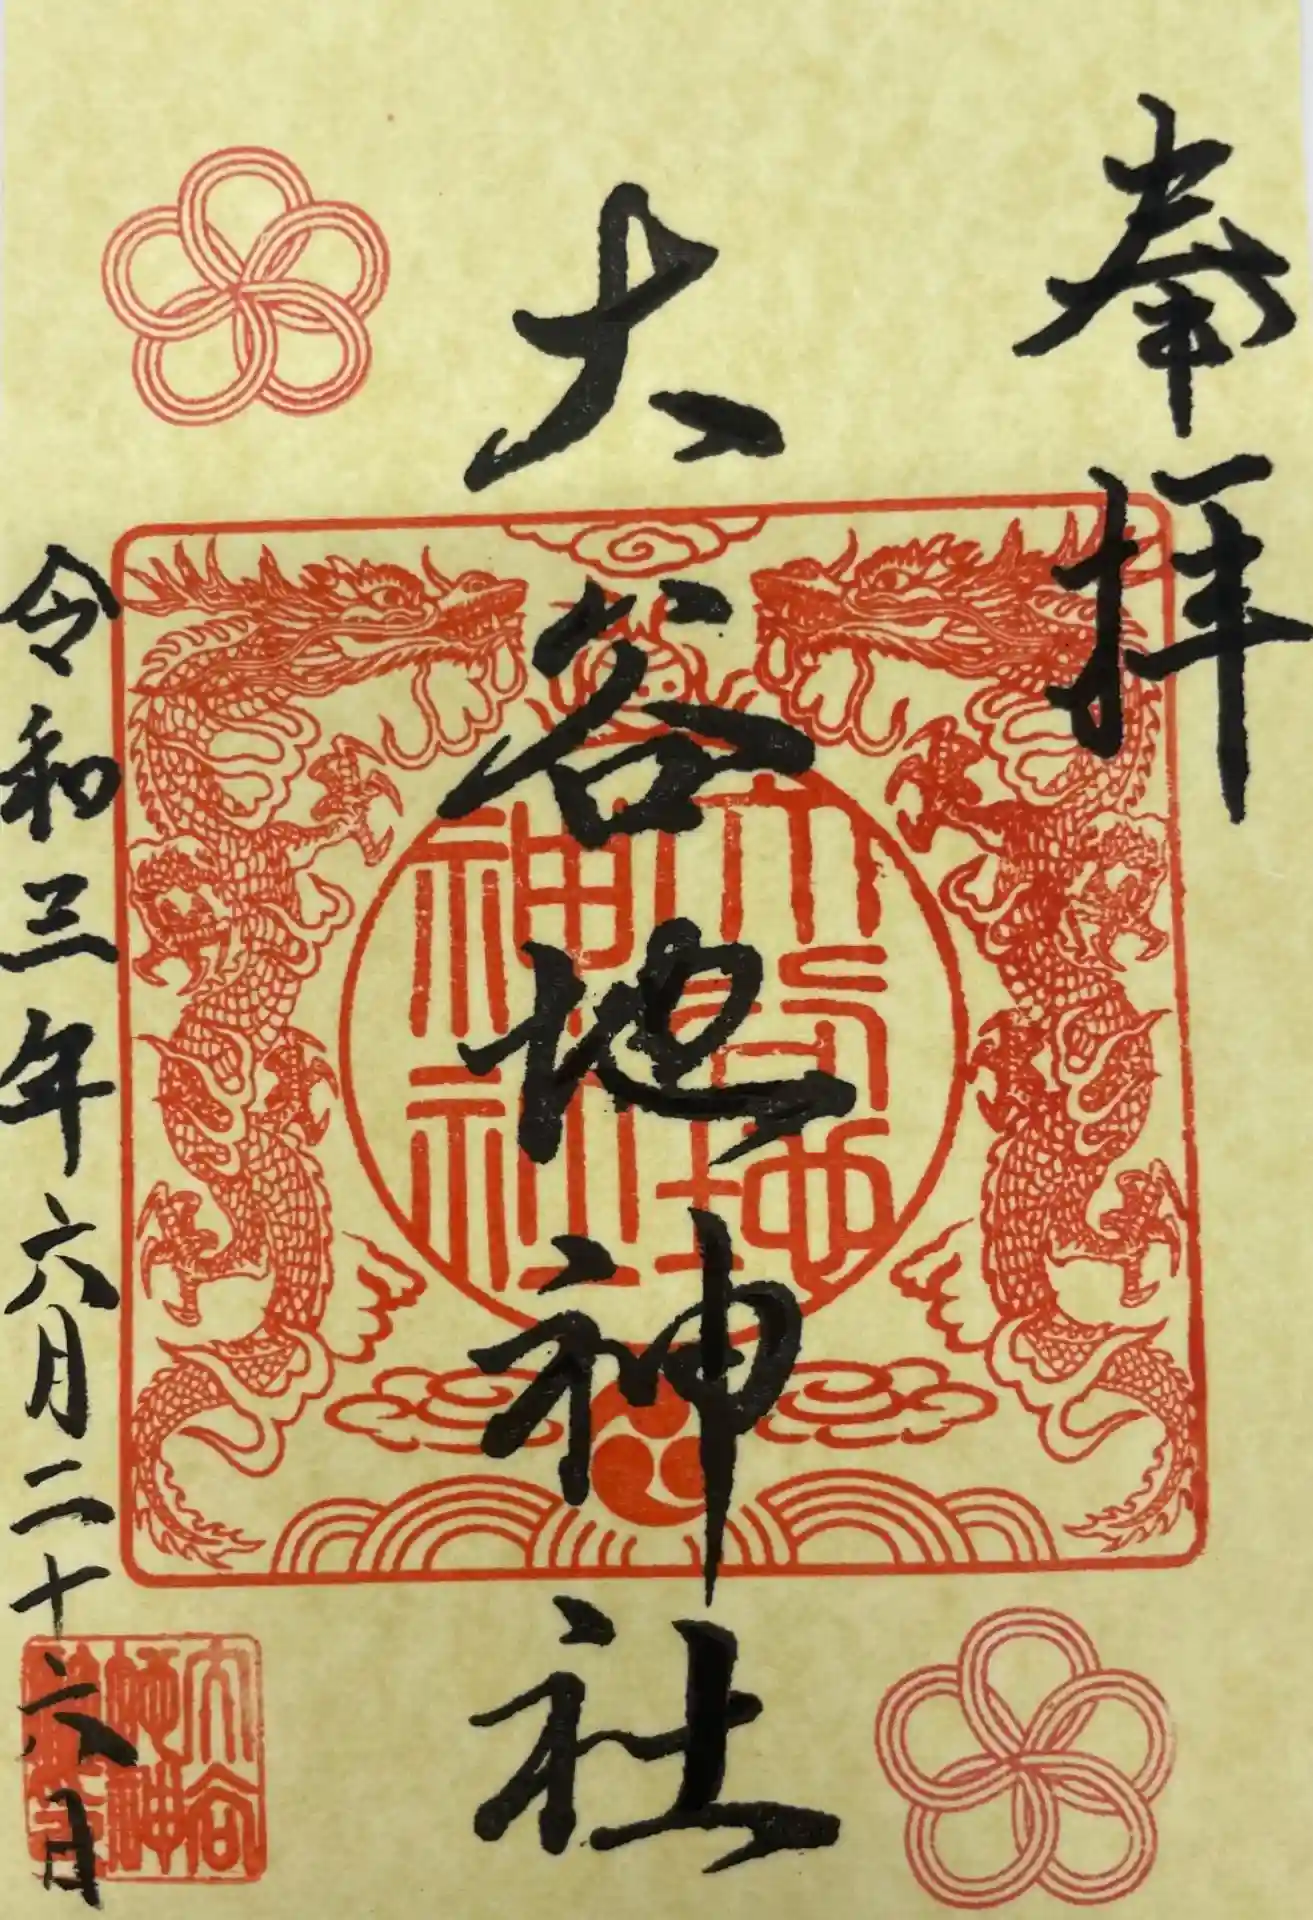 奉拝
大谷地神社
大谷地神社
令和三年六月二十六日
大谷地神